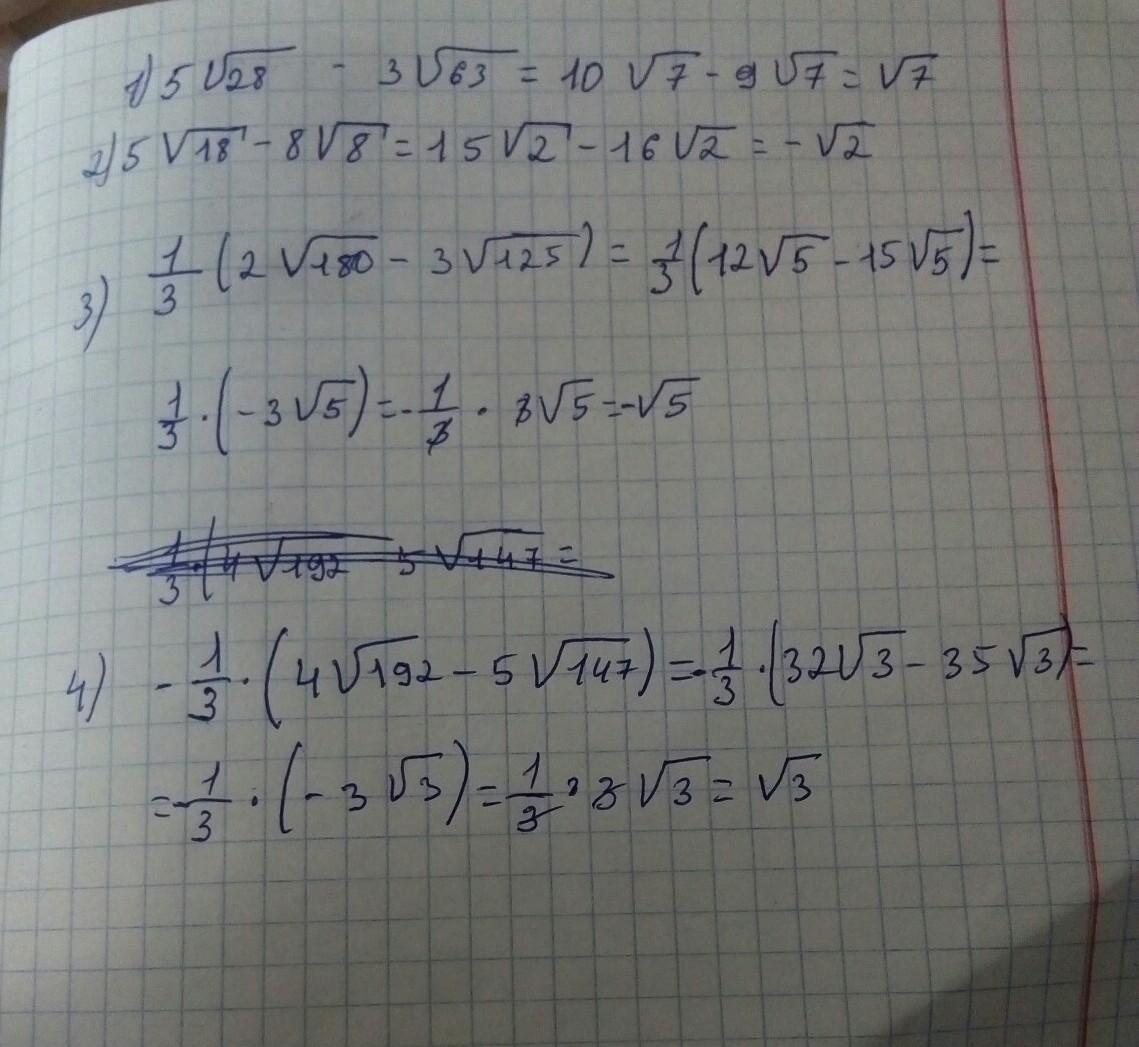 1) 5√28 - 3√63 = 10√7 - 9√7 = √7
2) 5√18 - 8√8 = 15√2 - 16√2 = -√2
3) 1/3 (2√180 - 3√125) = 1/3 (12√5 - 15√5) =
1/3 · (-3√5) = -1/3 · 3√5 = -√5
1/3 · (4√192 5√147 =
4) -1/3 · (4√192 - 5√147) = -1/3 · (32√3 - 35√3) =
= -1/3 · (-3√3) = 1/3 · 3√3 = √3